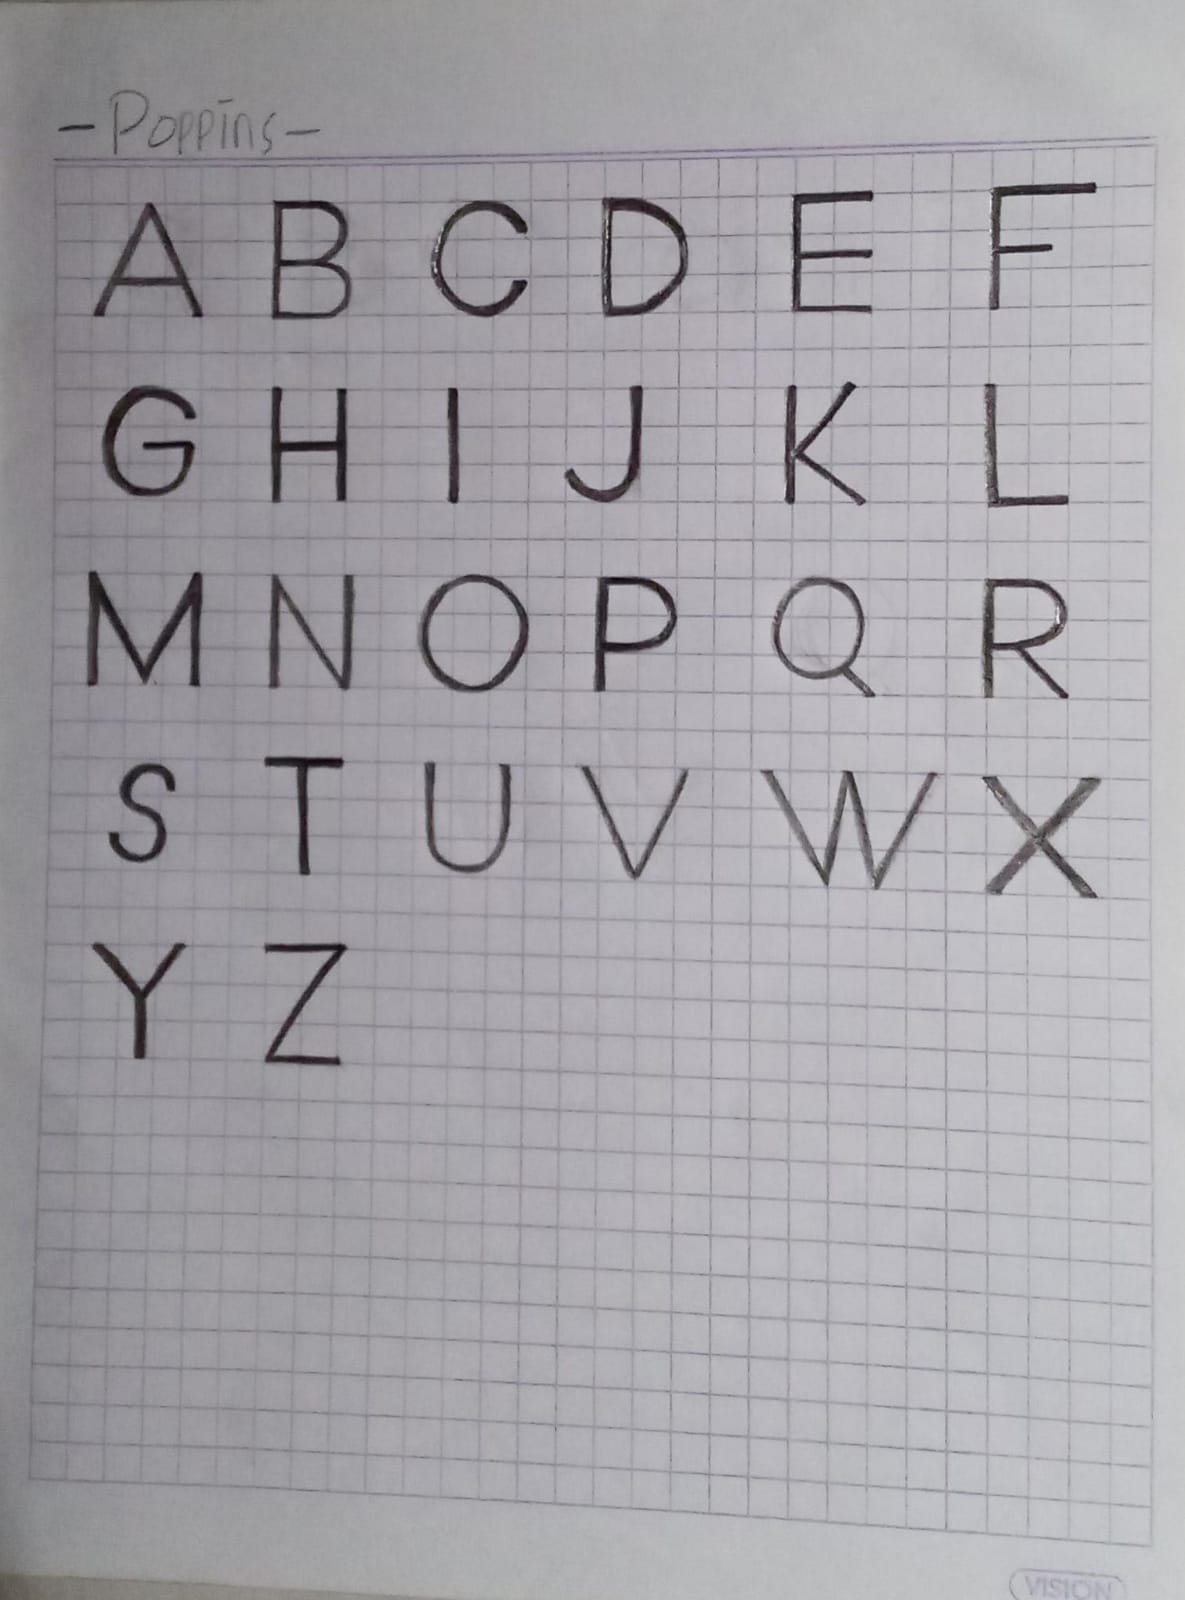 -Poppins-
A B C D E F
G H I J K L
M N O P Q R
S T U V W X
Y Z
VISION